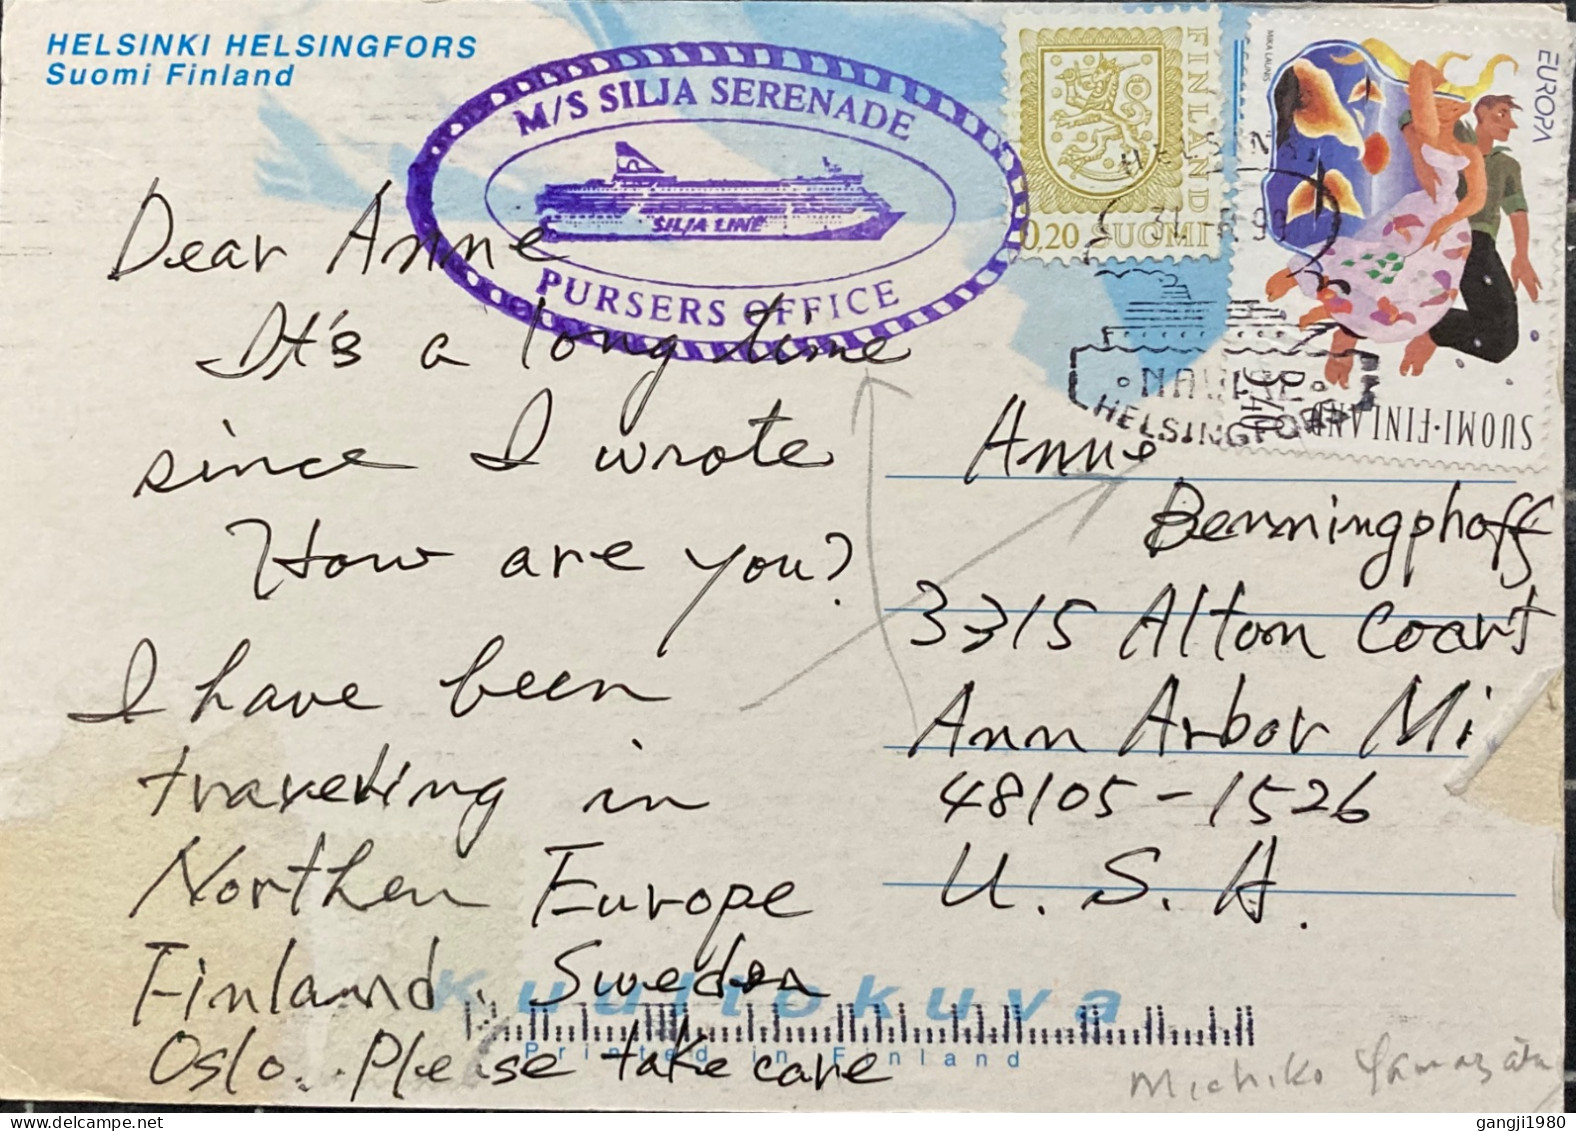 HELSINKI HELSINGFORS
Suomi Finland
M/S SILJA SERENADE
SILJA LINE
PURSERS OFFICE
FINLAND
0,20 SUOMI
MIKA LAUNIS
EUROPA
SUOMI·FINLAND
HELSINKI
HELSINGFORS
Dear Anne
It's a long time
since I wrote
How are you?
I have been
traveling in
Northen Europe
Finland. Sweden
Oslo.. Please take care
Anne
Benningphoff
3315 Alton Coart
Ann Arbor Mi
48105-1526
U. S. A.
Kuultokuva
Printed in Finland
Michiko
gangji1980